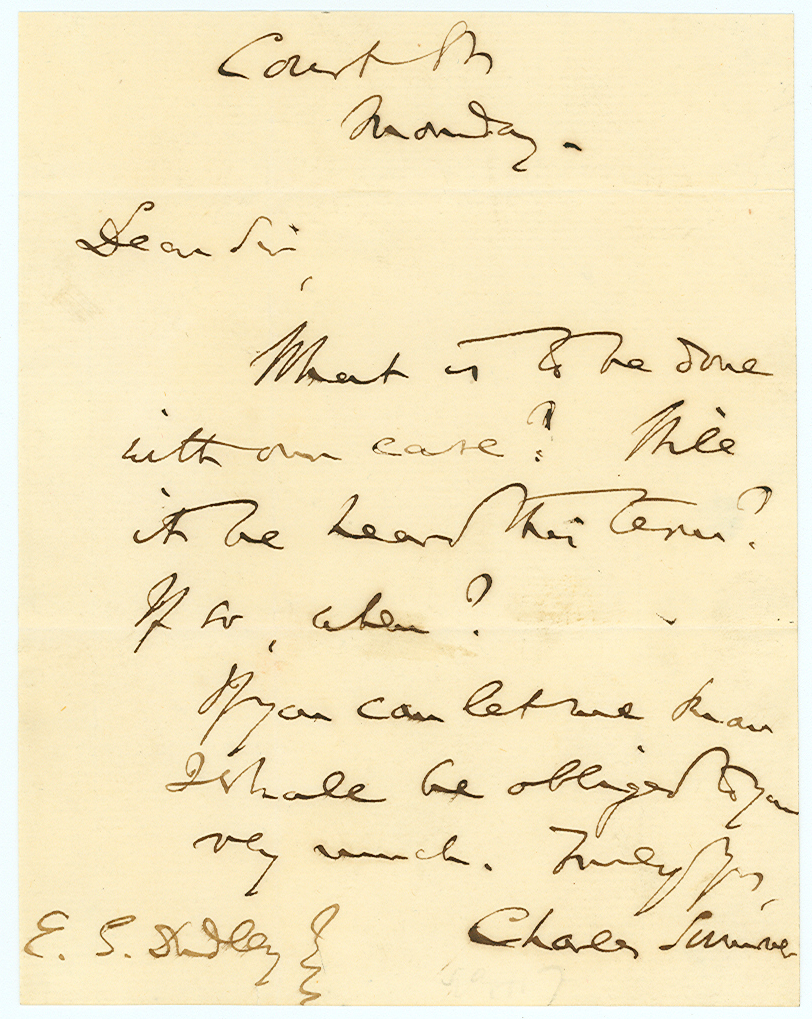 Court St
Monday.
Dear Sir,
What is to be done
with our case? Will
it be heard this term?
If so, when?
If you can let me know
I shall be obliged to you
very much. Truly Yrs,
Charles Sumner
E. S. Dudley